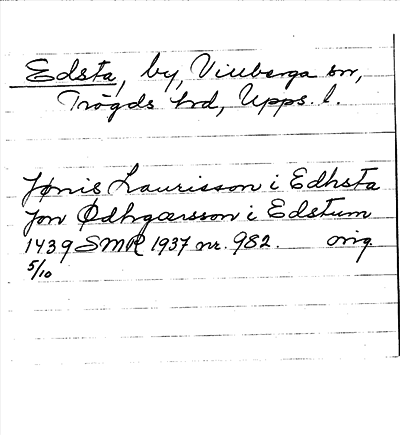 Edsta, by, Villberga sn,
Trögds hd, Upps. l.
Jønis Laurisson i Edhsta
Jon Ødhgærsson i Edstum
1439 SMR 1937 nr. 982. orig
5/10